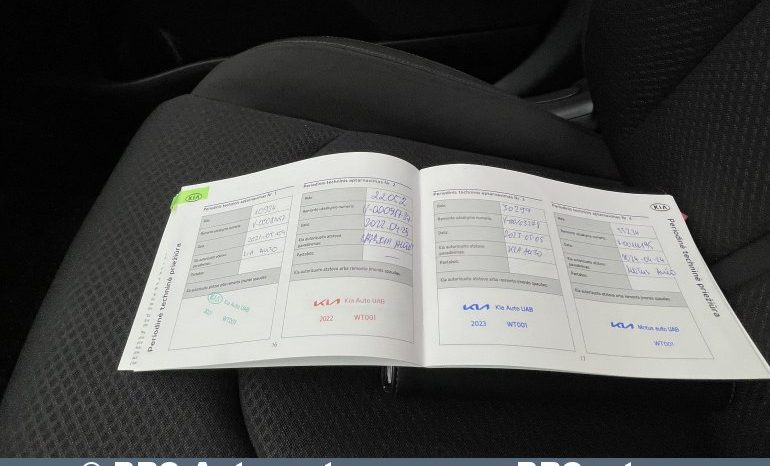 KIA
Periodinė techninė priežiūra
Periodinis techninis aptarnavimas Nr. 1
Rida:
Remonto užsakymo numeris:
Data:
2021-05-
Kia autorizuoto atstovo
pavadinimas:
KIA AUTO
Pastabos:
Kia autorizuoto atstovo arba remonto įmonės spaudas:
KIA Kia Auto UAB
2021 WT001
Periodinis techninis aptarnavimas Nr. 2
Rida:
22052
Remonto užsakymo numeris:
Data:
2022.04.29
Kia autorizuoto atstovo
pavadinimas:
Pastabos:
Kia autorizuoto atstovo arba remonto įmonės spaudas:
KIA Kia Auto UAB
2022 WT001
16
Periodinis techninis aptarnavimas Nr. 3
Rida:
30299
Remonto užsakymo numeris:
Data:
2023-05-05
Kia autorizuoto atstovo
pavadinimas:
KIA AUTO
Pastabos:
Kia autorizuoto atstovo arba remonto įmonės spaudas:
KIA Kia Auto UAB
2023 WT001
Periodinis techninis aptarnavimas Nr. 4
Rida:
Remonto užsakymo numeris:
Data:
Kia autorizuoto atstovo
pavadinimas:
Pastabos:
Kia autorizuoto atstovo arba remonto įmonės spaudas:
KIA Motus auto UAB
WT001
17
KIA
Periodinė techninė priežiūra